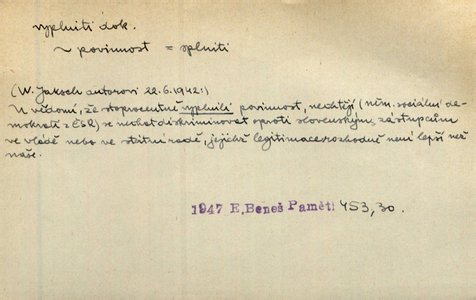 vyplniti dok.
~ povinnost = splniti
(W. Jaksch autorovi 22.6.1942:)
U vědomí, že stoprocentně vyplnili povinnost, nechtějí (něm. sociální de-
mokraté z ČSR) se nechat diskriminovat oproti slovenským zástupcům
ve vládě nebo ve státní radě, jejichž legitimace rozhodně není lepší než
naše.
1947 E. Beneš Paměti 453, 30.